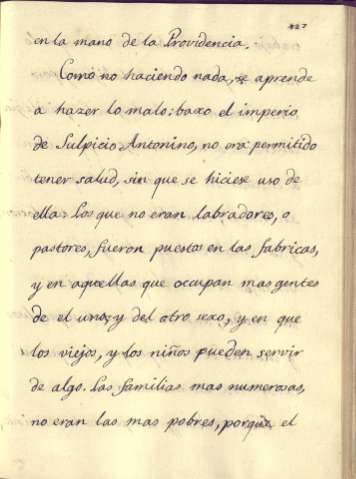 en la mano de la Providencia.
Como no haciendo nada, se aprende
a hazer lo malo: baxo el imperio
de Sulpicio Antonino, no era permitido
tener salud, sin que se hiciese uso de
ella: Los que no eran labradores, o
pastores, fueron puestos en las fabricas,
y en aquellas que ocupan mas gentes
de el uno, y del otro sexo, y en que
los viejos, y los niños pueden servir
de algo. Las familias mas numerosas,
no eran las mas pobres, porque el